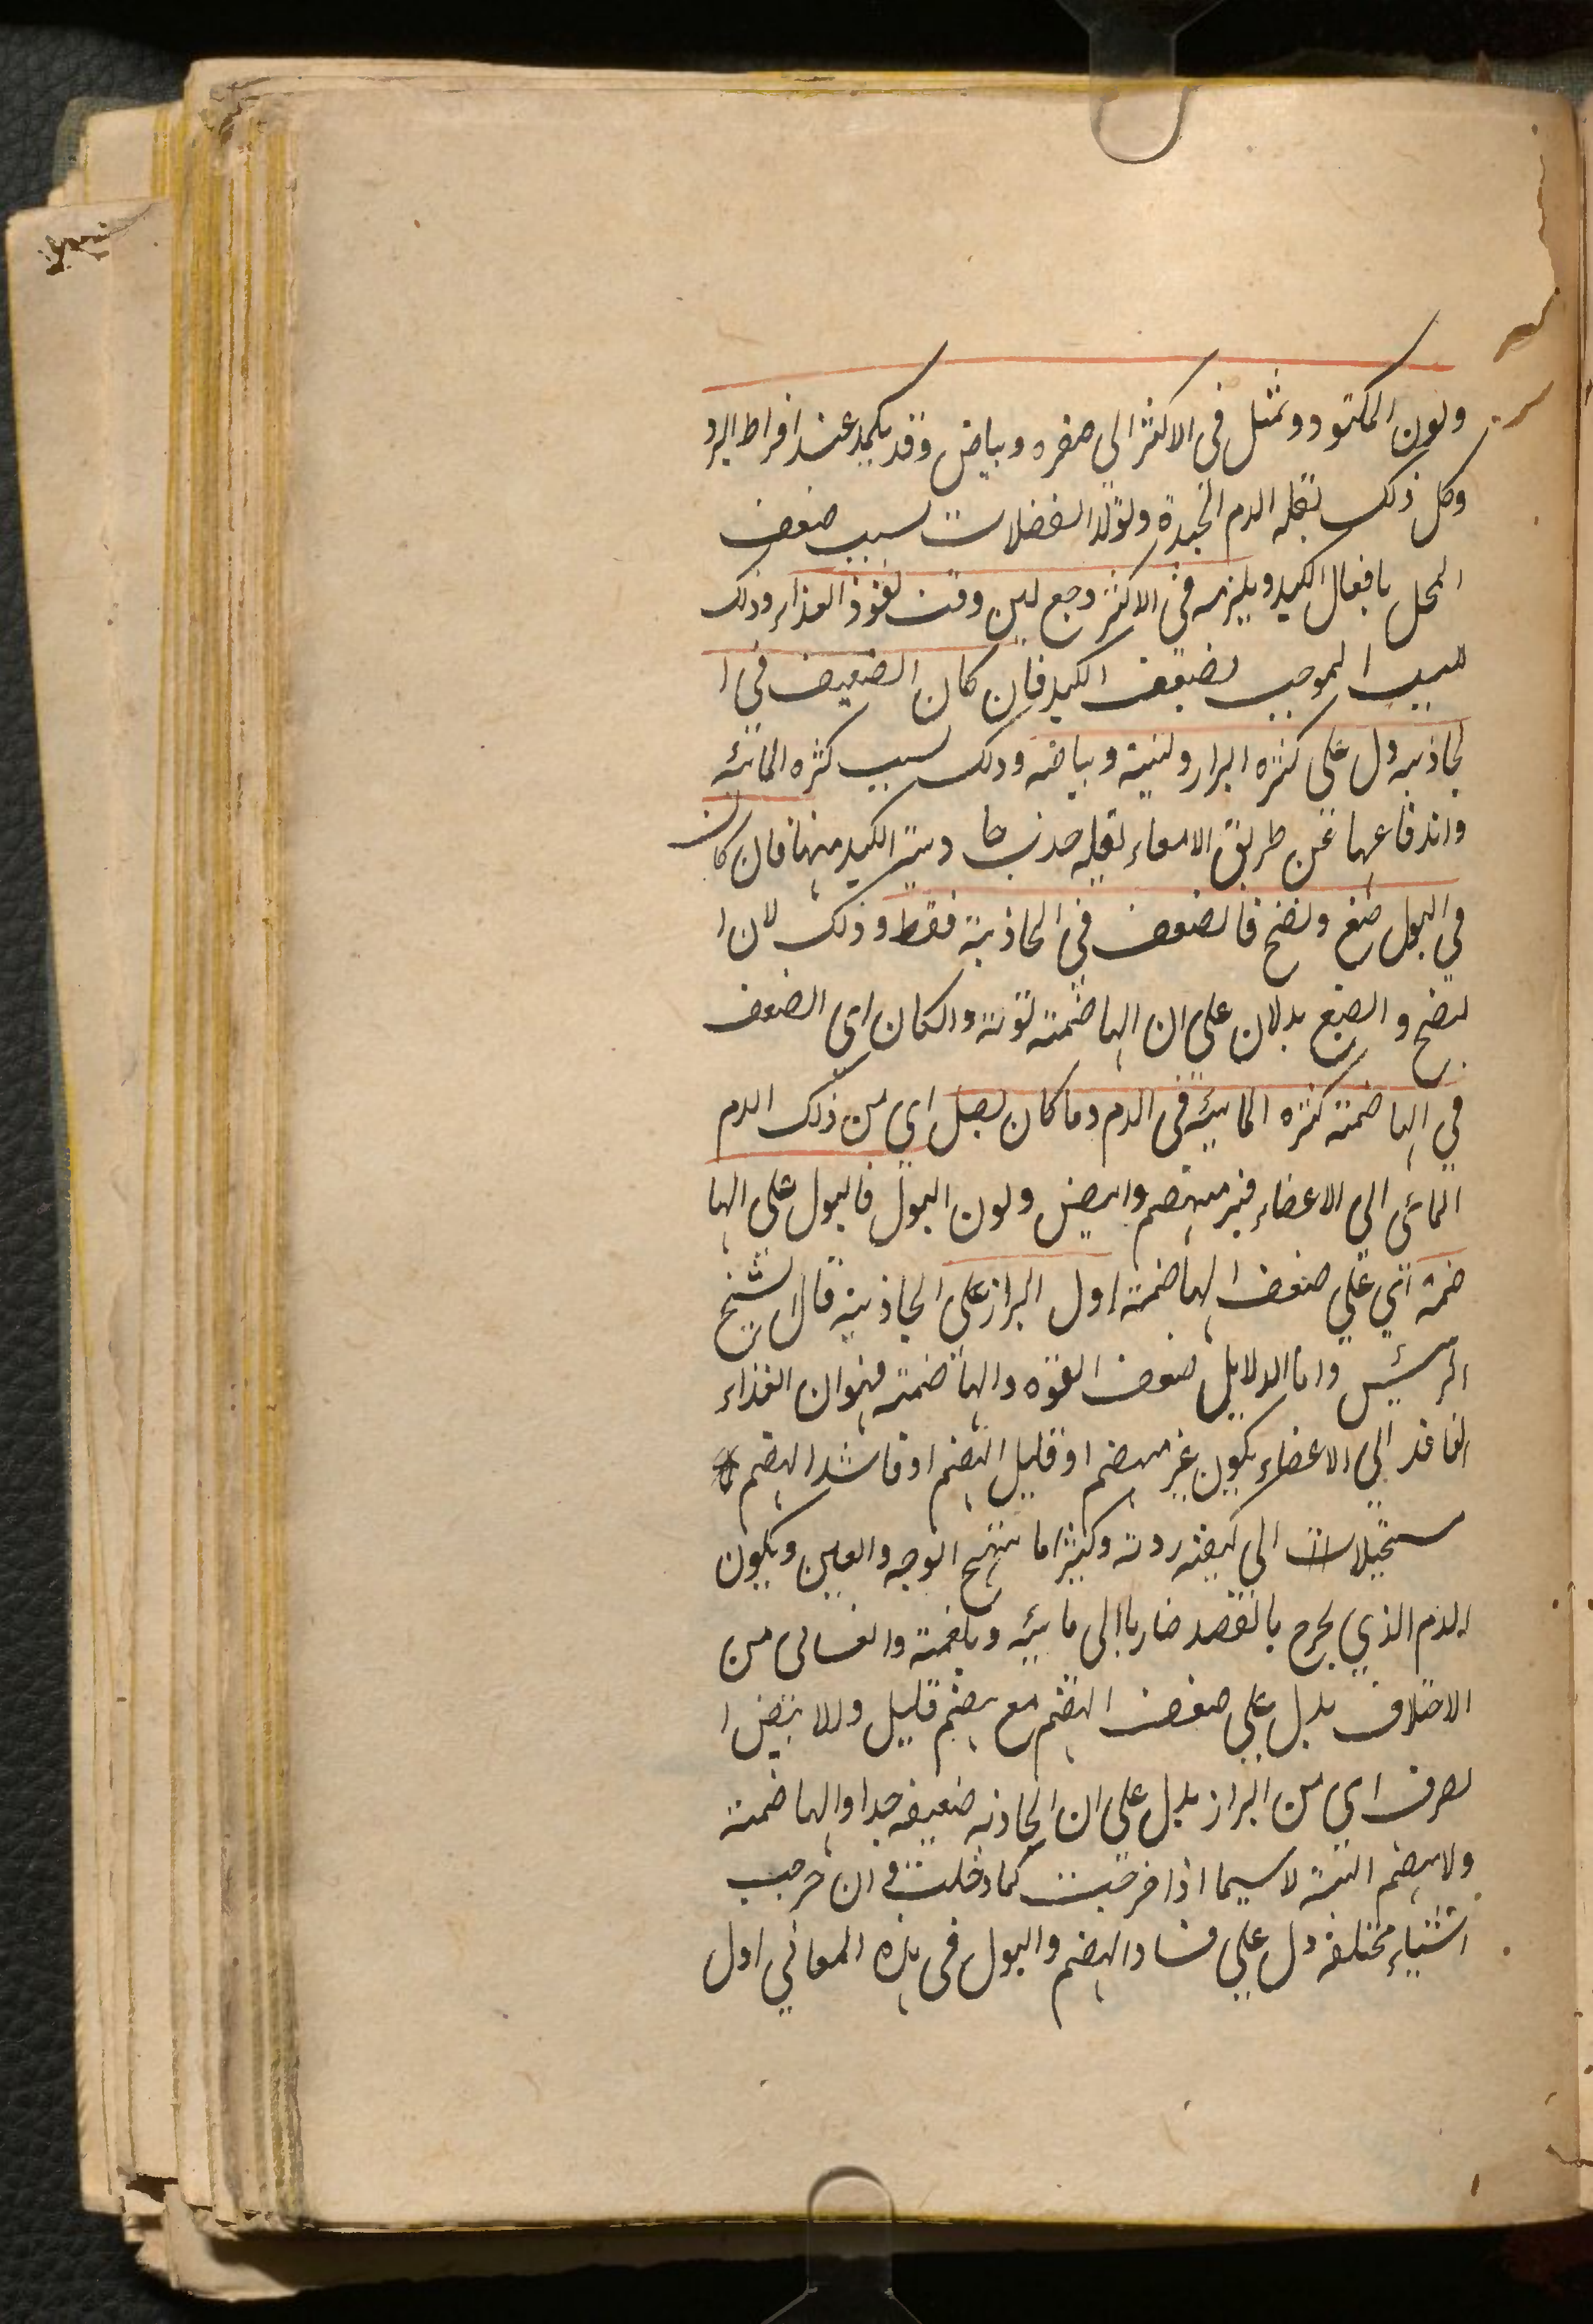 ولون المكبود وتمثل في الاكثر الي صفره وبياض وقد يكمد عند افراط البرد
وكل ذلك لقله الدم الجيدة ولتولد الفضلات لسبب ضعف
المحل بافعال الكبد ويلزمه في الاكثر وجع لين وقت نفوذ الغذاء وذلك
للسبب الموجب لضعف الكبد فان كان الضعيف في ا
لجاذبه دل علي كثره البراز ولينية وبياضه وذلك لسبب كثره المائيه
واندفاعها عن طريق الامعاء لقله جذب جا دبية الكبد منها فان كان
في البول صبغ ونضج فالضعف في الجاذبية فقط وذلك لان ا
لنضج والصبغ يدلان علي ان الهاضمة قوية والكان اي الضعف
في الهاضمة كثره المائيه في الدم وما كان يصل اي من ذلك الدم
المائي الي الاعضاء غير منهضم وابيض ولون البول فالبول علي الها
ضمة اي علي ضعف الهاضمة ادل البراز علي الجاذبية قال الشيخ
الرئيس واما الدلايل ضعف القوه والهاضمة فهو ان الغذاء
النافذ الي الاعضاء يكون غير منهضم او قليل الهضم او فاسد الهضم
مستحيلات الي كيفية ردية وكثيرا ما يتهيج الوجه والعين ويكون
الدم الذي يخرج بالفصد ضاربا الي مائيه وبلغمية والغسالي من
الاختلاف يدل علي ضعف الهضم مع هضم قليل والابيض ا
لصرف اي من البراز يدل علي ان الجاذبه ضعيفه جدا والهاضمة
ولا يهضم البتة لاسيما اذا خرجت كما دخلت في ان خرجت
اشياء مختلفه دل علي فساد الهضم والبول في هذه المعاني ادل